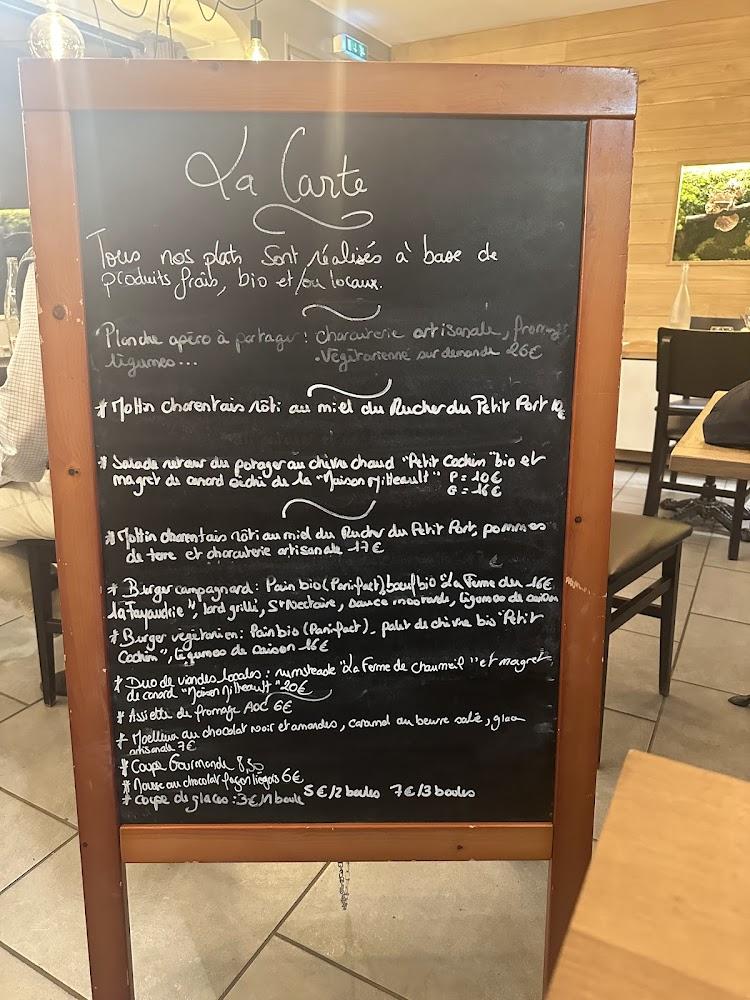 La Carte
Tous nos plats sont réalisés à base de
produits frais, bio et/ou locaux.
Planche apéro à partager : charcuterie artisanale, fromages
légumes... .Végétarienne sur demande 26€
* Mottin charentais rôti au miel du Rucher du Petit Port
* Salade retour du potager au chèvre chaud "Petit Cochim" bio et
magret de canard séché de la "Maison Mitteault" P = 10€
G = 16€
* Mottin charentais rôti au miel du Rucher du Petit Port, pommes
de terre et charcuterie artisanale 17€
* Burger campagnard : Pain bio (Panifact) bœuf bio "à la Ferme de 16€
la Fayaudrie", lard grillé, St Nectaire, sauce moutarde, légumes de saison
* Burger végétarien : Pain bio (Panifact)_ palet de chèvre bio "Petit
Cochim", légumes de saison 16€
* Duo de viandes locales : rumsteack "à la Ferme de Chaumeil" et magret
de canard "Maison Mitteault" 20€
* Assiette de fromage AOC 6€
* Moelleux au chocolat noir et amandes, caramel au beurre salé, glace
artisanale 7€
* Coupe Gourmande 8,50
* Mousse au chocolat façon liégeois 6€
* Coupe de glaces : 3€/1 boule 5€/2 boules 7€/3 boules